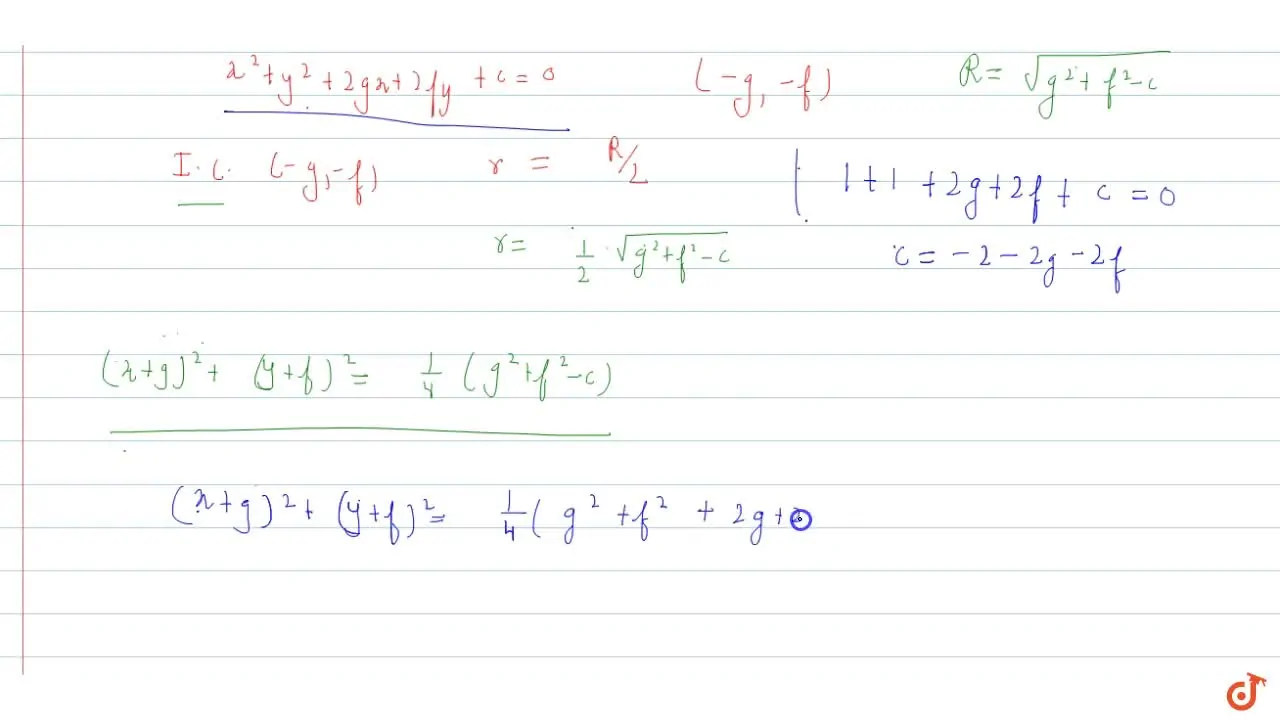 x² + y² + 2gx + 2fy + c = 0 (-g, -f) R = √(g² + f² - c)
I.C. (-g, -f) r = R/2
1 + 1 + 2g + 2f + c = 0
r = 1/2 √(g² + f² - c)
c = -2 - 2g - 2f
(x+g)² + (y+f)² = 1/4 (g² + f² - c)
(x+g)² + (y+f)² = 1/4 (g² + f² + 2g +